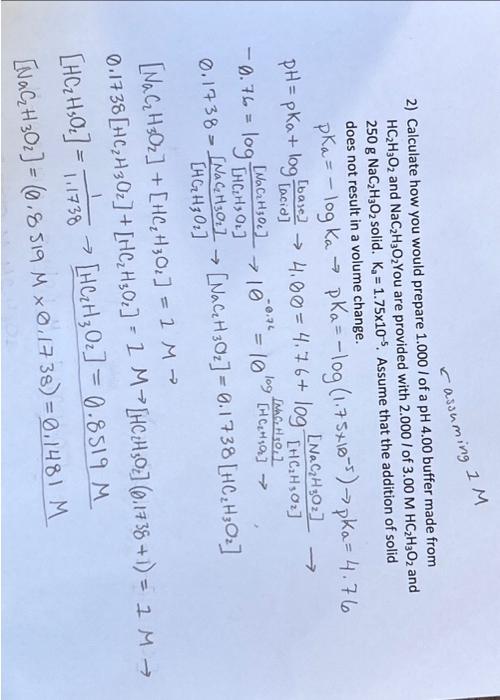 ← assuming 1 M
2) Calculate how you would prepare 1.000 l of a pH 4.00 buffer made from
HC₂H₃O₂ and NaC₂H₃O₂You are provided with 2.000 l of 3.00 M HC₂H₃O₂ and
250 g NaC₂H₃O₂ solid. Kₐ = 1.75x10⁻⁵. Assume that the addition of solid
does not result in a volume change.
pKa = - log Ka → pKa = -log(1.75x10⁻⁵) → pKa = 4.76
pH = pKa + log [base]/[acid] → 4.00 = 4.76 + log [NaC₂H₃O₂]/[HC₂H₃O₂] →
-0.76 = log [NaC₂H₃O₂]/[HC₂H₃O₂] → 10^-0.76 = 10^log [NaC₂H₃O₂]/[HC₂H₃O₂] →
0.1738 = [NaC₂H₃O₂]/[HC₂H₃O₂] → [NaC₂H₃O₂] = 0.1738 [HC₂H₃O₂]
[NaC₂H₃O₂] + [HC₂H₃O₂] = 1 M →
0.1738 [HC₂H₃O₂] + [HC₂H₃O₂] = 1 M → [HC₂H₃O₂] (0.1738 + 1) = 1 M →
[HC₂H₃O₂] = 1/1.1738 → [HC₂H₃O₂] = 0.8519 M
[NaC₂H₃O₂] = (0.8519 M x 0.1738) = 0.1481 M